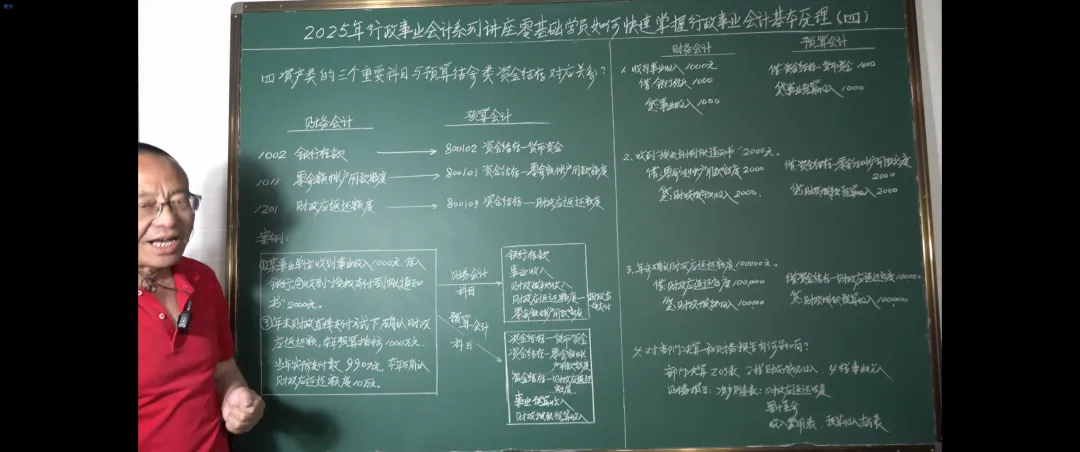 2025年行政事业会计系列讲座零基础学员如何快速掌握行政事业会计基本原理(四)
四 资产类的三个重要科目与预算结余类资金结存对应关系?
财务会计 预算会计
1002 银行存款 → 800102 资金结存—货币资金
1011 零余额帐户用款额度 → 800101 资金结存—零余额帐户用款额度
1201 财政应返还额度 → 800103 资金结存—财政应返还额度
案例:
①某事业单位收到事业收入1000元存入
银行②收到"授权支付到帐通知
书"2000元。
③年末财政直接支付方式下,确认财政
应返还额,本年预算指标1000万元,
当年实际支付数990万元,年末确认
财政应返还额度10万元。
财务会计
科目
预算会计
科目
银行存款
事业收入
财政拨款收入
财政应返还额度
零余额帐户用款额度
资金结存—货币资金
资金结存—零余额帐
户用款额度
资金结存—财政应返还
额度
事业预算收入
财政拨款预算收入
财务会计 预算会计
1.收到事业收入1000元
借:银行存款 1000
贷:事业收入 1000
借:资金结存—货币资金 1000
贷:事业预算收入 1000
2.收到"授权支付到帐通知书"2000元。
借:零余额帐户用款额度 2000
贷:财政拨款收入 2000
借:资金结存—零余额帐户用款额度
2000
贷:财政拨款预算收入 2000
3.年末确认财政应返还额度100000元。
借:财政应返还额度 100,000
贷:财政拨款收入 100000
借:资金结存—财政应返还额度 100000
贷:财政拨款预算收入 100,000
4.对部门决算和财务报告有何影响?
财务报告:资产负债表:财政应返还额度
累计盈余
收入费用表